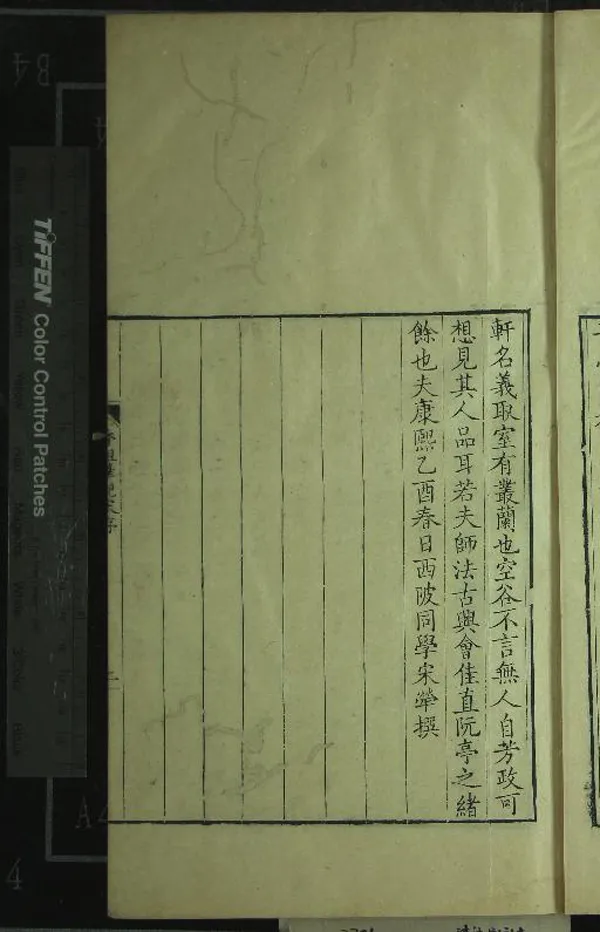 軒名義取室有叢蘭也空谷不言無人自芳政可
想見其人品耳若夫師法古興會佳直阮亭之緒
餘也夫康熙乙酉春日西陂同學宋犖撰
TIFFEN Color Control Patches
B4
A4
4